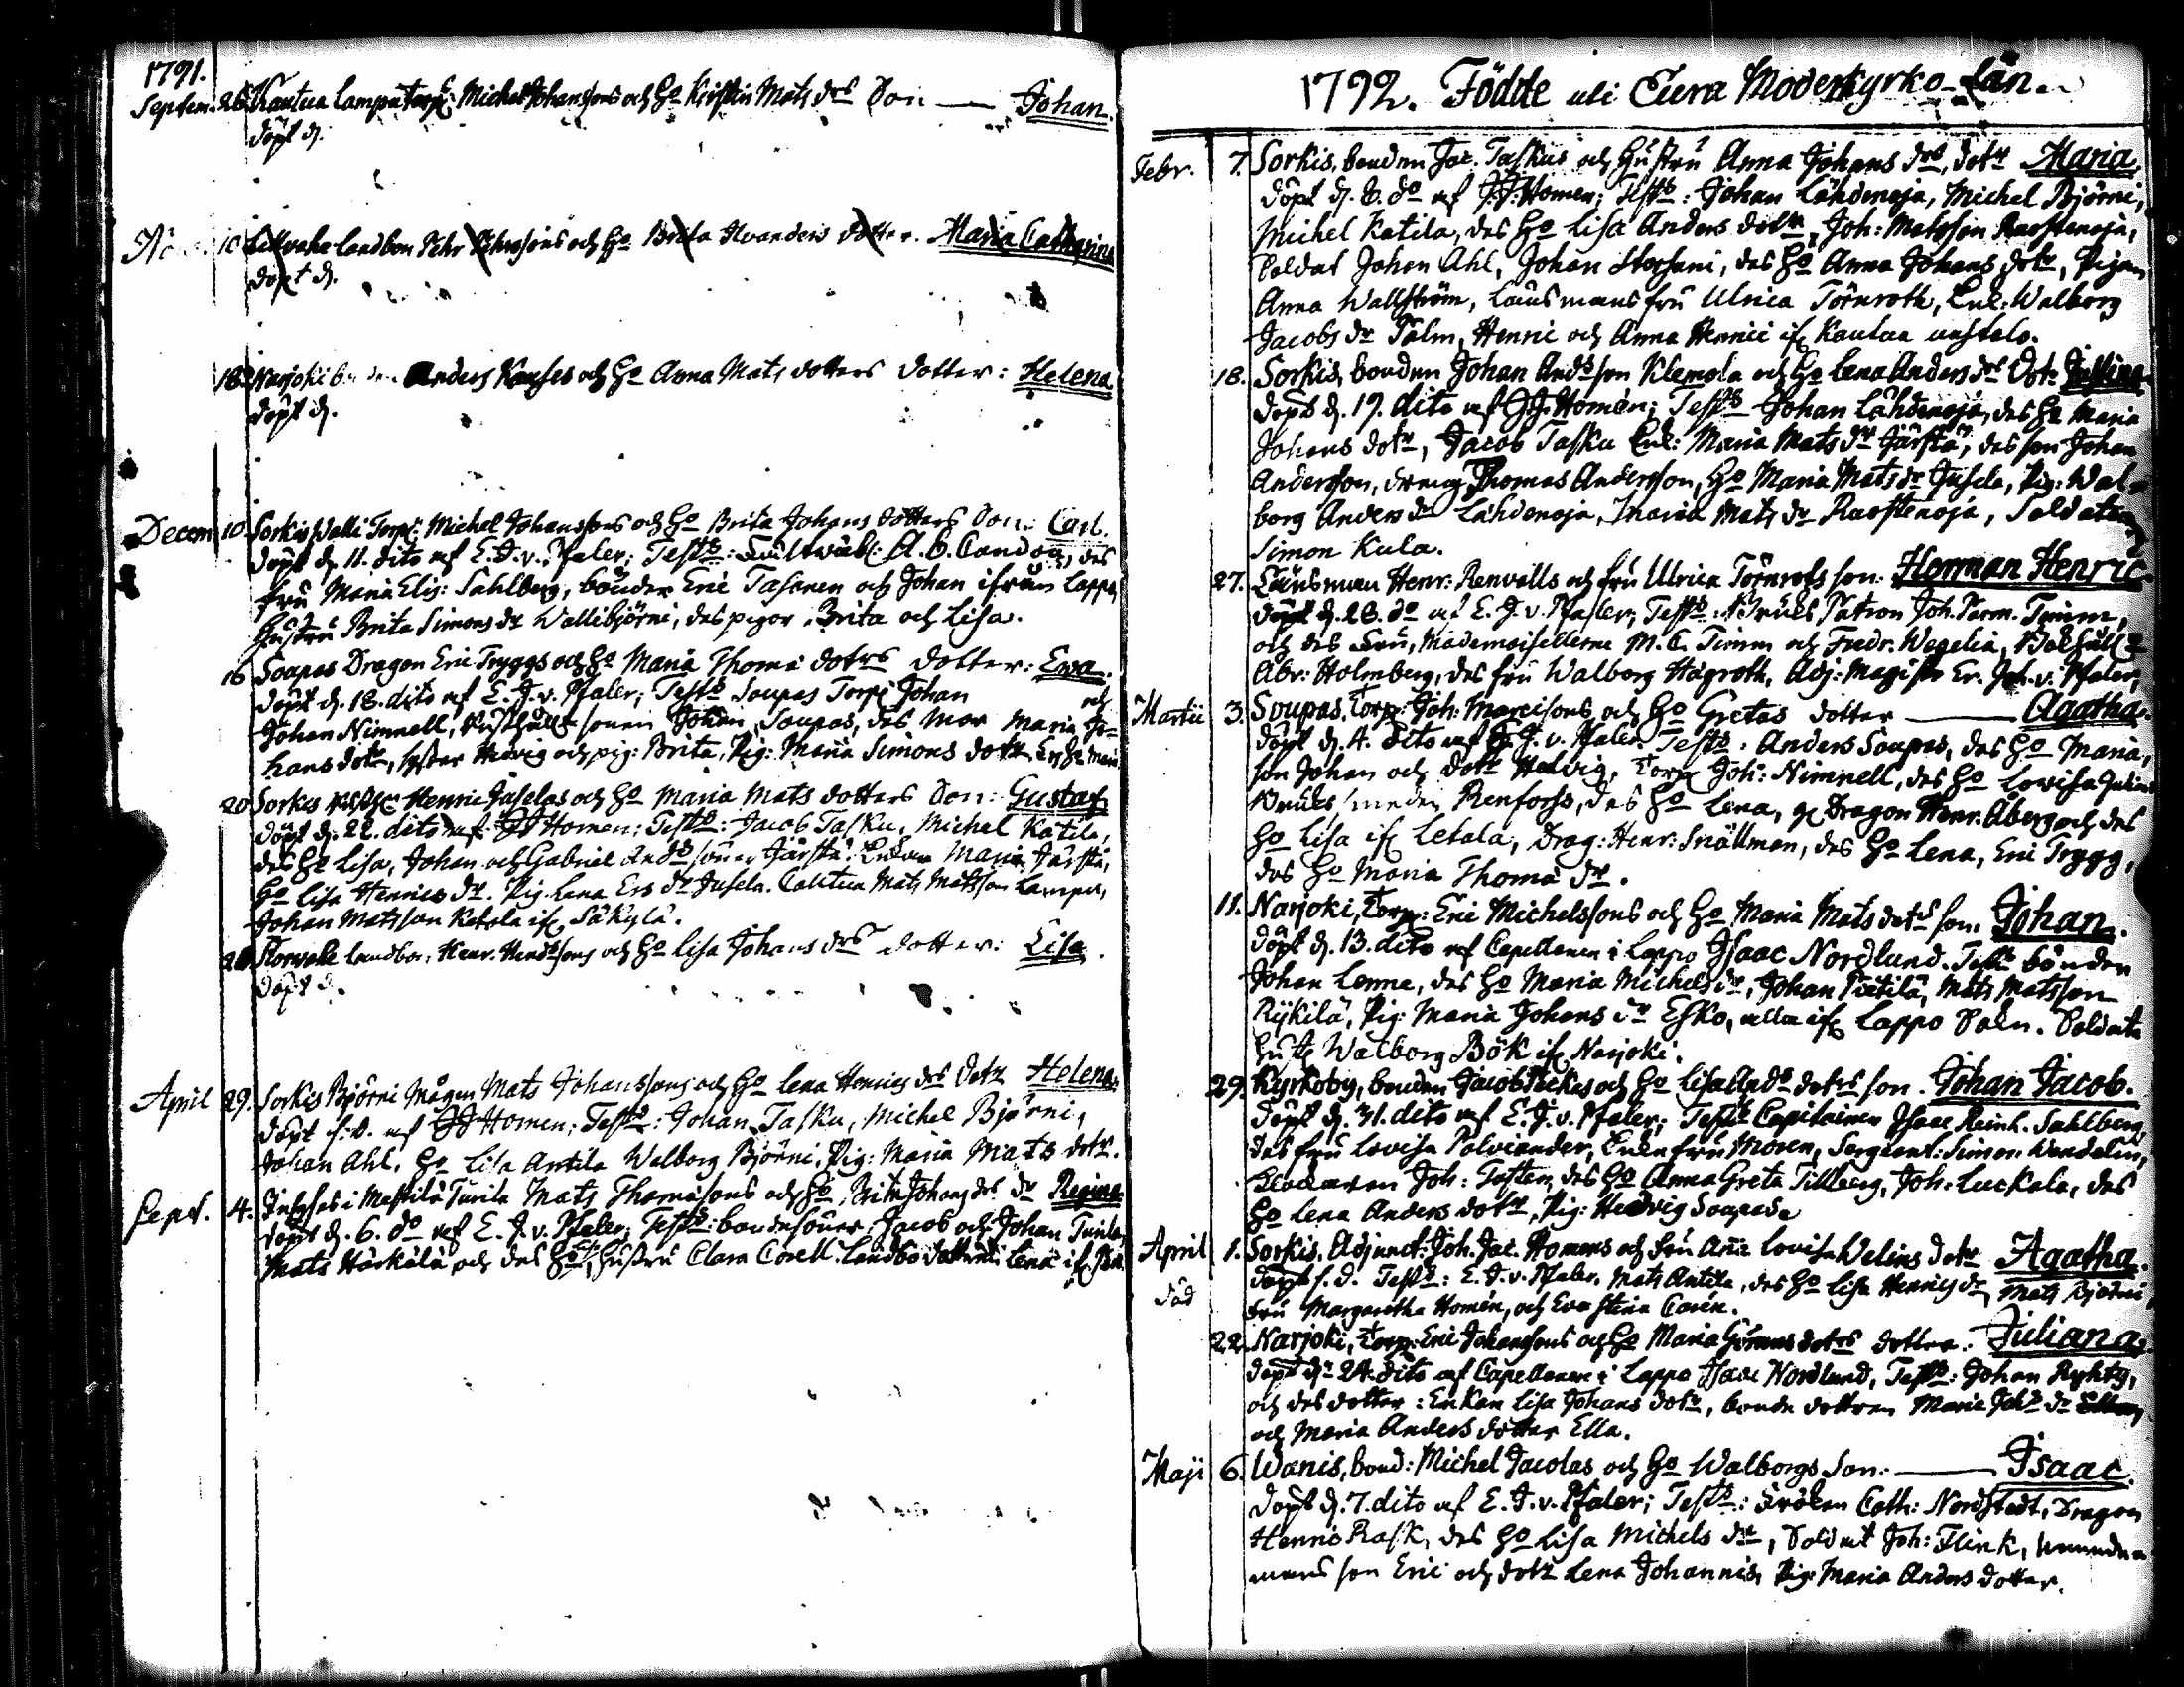 1791.
Septem. 26. Kautua Lampu Torp: Michel Johanssons och Ho Kirstin Mats drs Son — Johan.
döpt d.
10 Landbon Pehr Pehrssons och Ho Brita Evanders dotter. Maria Catharina
döpt d.
18. Narjoki bonden Anders och Ho Anna Mats dotters dotter: Helena
döpt d.
Decem 10 Sorkis Walli Torp: Michel Johanssons och Ho Brita Johans dotters Son. Carl.
döpt d. 11. dito af E. J. v. Pfaler; Testes: A. B. des
fru Maria Elis: Sahlberg, bönder Eric Tasanen och Johan ifrån Lappo,
Hustru Brita Simons dr Wallibjörni, des pigor Brita och Lisa.
16 Soupas Dragon Eric Tryggs och Ho Maria Thomæ dotrs dotter: Ewa.
döpt d. 18. dito af E. J. v. Pfaler; Testes Soupas Torp: Johan
Johan Nimnell, sonen Johan Soupas, des Mor Maria Jo= och
hans dotr, syster Hedvig och pig: Brita, Pig: Maria Simons dotr
20 Sorkis Henric Juselas och Ho Maria Mats dotters Son: Gustaf
döpt d. 22. dito af JJ Homen; Testes: Jacob Tasku, Michel Katila,
des Ho Lisa, Johan och Gabriel Anders söner Järstä. Enkan Maria Järstä,
Ho Lisa Henrics dr. Pig. Lena Ers dr Jusela. Cautua Mats Matsson Lampu,
Johan Matsson Ketola if. Säkylä.
28 Landbon, Henr. Hendssons och Ho Lisa Johans drs dotter: Lisa.
döpt d.
April 29. Sorkis Björni Mågen Mats Johanssons och Ho Lena Henrics drs dotr Helena
döpt s. d. af JJ Homen; Testes: Johan Tasku, Michel Björni,
Johan Ahl, Ho Lisa Antila Walborg Björni, Pig: Maria Mats dotr.
Sept. 4. i Mestilä Tunila Mats Thomæsons och Ho Brita Johans drs dr Regina
döpt d. 6. do af E. J. v. Pfaler; Testes: bondesöner Jacob och Johan Tunila,
Mats Härkälä och des Ho, Hustru Clara Corell. Landbo dottren Lena if.
1792. Födde uti Eura Moderkyrko-län.
Febr. 7. Sorkis, bonden Jac. Taskus och Hustru Anna Johans drs, dotr Maria.
döpt d. 8. do af J. J. Homen; Testes: Johan Lähdenoja, Michel Björni,
Michel Katila, des Ho Lisa Anders dotr, Joh: Matsson Raostenoja,
Soldat Johan Ahl, Johan des Ho Anna Johans dotr, Pigan
Anna Wallström, Länsmans fru Ulrica Törnroth, Enk: Walborg
Jacobs dr Palm, Henric och Anna Henrici if. Kautua
18. Sorkis, bonden Johan Andsson Klemola och Ho Lena Anders drs Dotr
döpt d. 19. dito af J. J. Homén; Testes Johan Lähdenoja, des Ho Maria
Johans dotr, Jacob Tasku Enk: Maria Mats dr Järstä, des son Johan
Andersson, dräng Thomas Andersson, Ho Maria Mats dr Jusela, Pig: Wal=
borg Anders dr Lähdenoja, Maria Mats dr Raostenoja, Soldaten
Simon Kula.
27. Länsman Henr: Renvalls och fru Ulrica Törnroths son. Herman Henric
döpt d. 28. do af E. J. v. Pfaler; Testes: Bruks Patron Joh. Herm. Timm,
och des Fru, Mademoisellerne M. C. Timm och Fredr. Wegelia, Bokhåll:
Abr: Holmberg, des fru Walborg Hagroth, Adj: Magist: Er. Joh. v. Pfaler,
Martii 3. Soupas, Torp: Joh: Marcisons och Ho Gretas dotter — Agatha.
döpt d. 4. dito af E. J. v. Pfaler. Testes: Anders Soupas, des Ho Maria,
son Johan och dotr Hedvig, Torp: Joh: Nimnell, des Ho Lovisa
Bruks smeden Renforss, des Ho Lena, Dragon Henr. Åberg och des
Ho Lisa if. Letala, Drag: Henr: Snällman, des Ho Lena, Eric Trygg,
des Ho Maria Thomæ dr.
11. Narjoki, Torp: Eric Michelssons och Ho Maria Mats dotrs son. Johan.
döpt d. 13. dito af Capellanen i Lappo Isaac Nordlund. Testes bönder
Johan Lenne, des Ho Maria Michels dr, Johan Pietilä, Mats Matsson
Rykilä, Pig: Maria Johans dr Esko, alla if. Lappo Sokn. Soldats
Hust: Walborg Bök if. Narjoki.
29. Kyrkoby, bonden Jacob och Ho Lisa Ands dotrs son. Johan Jacob.
döpt d. 31. dito af E. J. v. Pfaler; Testes Capitainen Isaac Reinh. Sahlberg,
des fru Lovisa Polviander, Enkefru Moren, Sergeant: Simon Wendelin,
Klockaren Joh: Tosten, des Ho Anna Greta Tillberg, Joh: Luckala, des
Ho Lena Anders dotr, Pig: Hedvig Soupas
April 1. Sorkis. Adjunct: Joh. Jac. Homens och Fru Ana Lovisa Welins dotr Agatha.
död döpt s. d. Testes: E. J. v. Pfaler. Mats Antila, des Ho Lisa Henrics dr, Mats Björni
Fru Margaretha Homén, och Eva Stina Carén.
22. Narjoki, Torp: Eric Johanssons och Ho Maria Görans dotrs dotter. Juliana
döpt d. 24. dito af Capellanen i Lappo Isaac Nordlund, Testes: Johan Ryhty,
och des dotter: Enkan Lisa Johans dotr, bonde dottren Maria Johs dr
och Maria Anders dotter Ella.
Maji 6. Wanis, bond: Michel Jacolas och Ho Walborgs Son: — Isaac.
döpt d. 7. dito af E. J. v. Pfaler; Testes: Fröken Cath: Nordstedt, Dragon
Henric Rask, des Ho Lisa Michels dr, Soldat Joh: Flink, Nämnde
mans son Eric och dotr Lena Johannis, Pig: Maria Anders dotter.